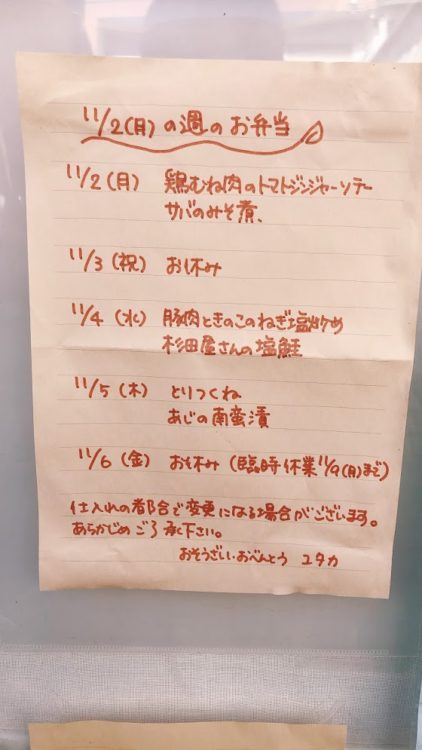 11/2(月)の週のお弁当
11/2(月) 鶏むね肉のトマトジンジャーソテー
サバのみそ煮、
11/3(祝) お休み
11/4(水) 豚肉ときのこのねぎ塩炒め
杉田屋さんの塩鮭
11/5(木) とりつくね
あじの南蛮漬
11/6(金) お休み(臨時休業11/9(月)まで)
仕入れの都合で変更になる場合がございます。
あらかじめご了承下さい。
おそうざい・おべんとう ユタカ